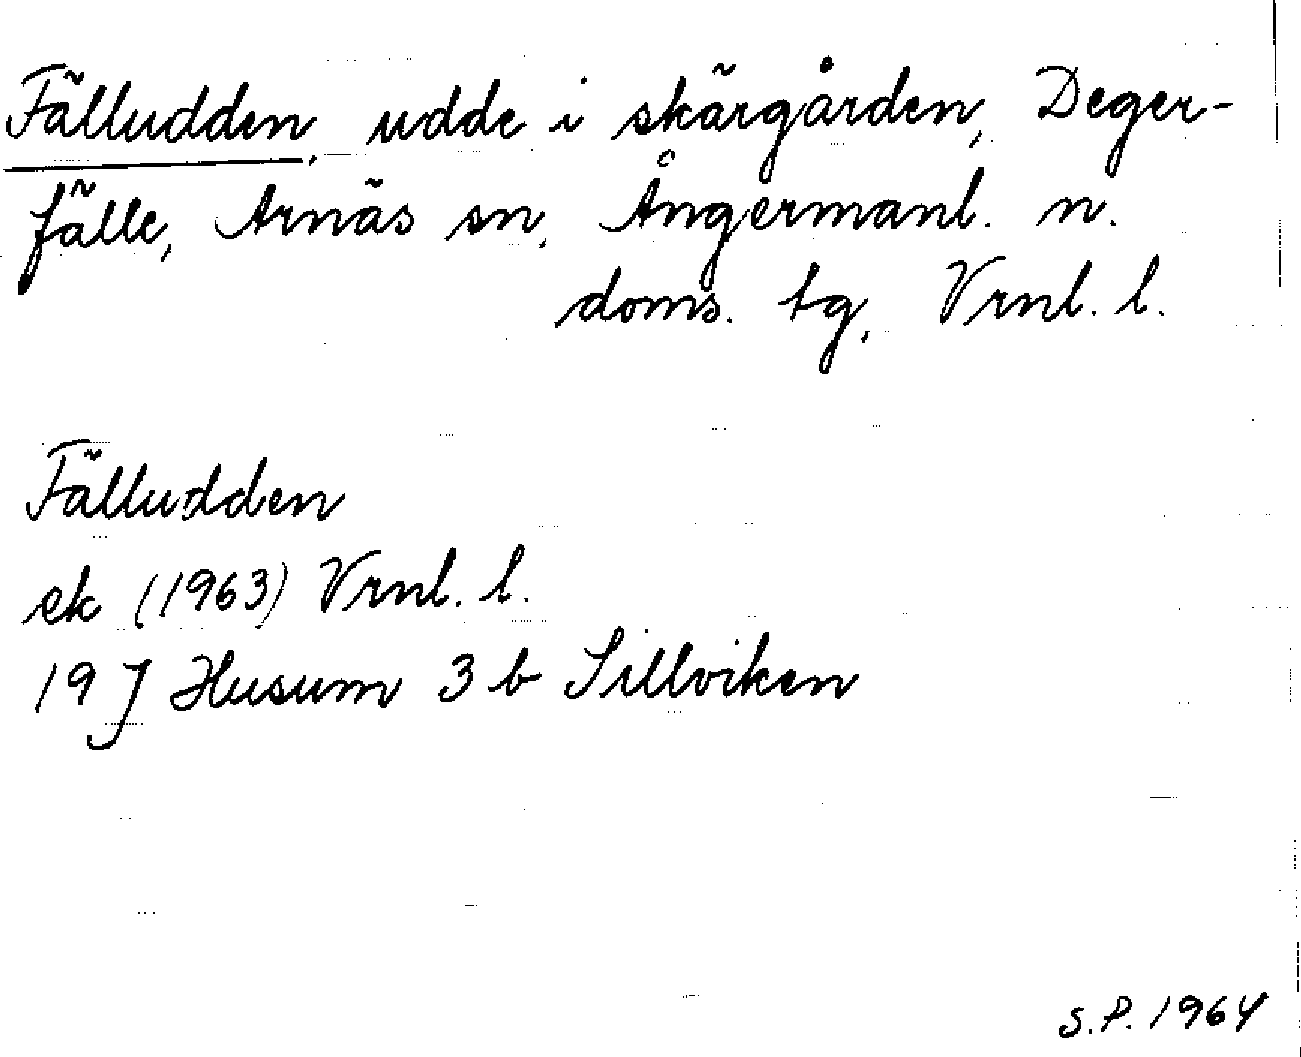 Fälludden, udde i skärgården, Deger-
fälle, Arnäs sn, Ångermanl. n.
doms. tg, Vrnl. l.
Fälludden
ek (1963) Vrnl. l.
19 J Husum 3 b Sillviken
S.P. 1964